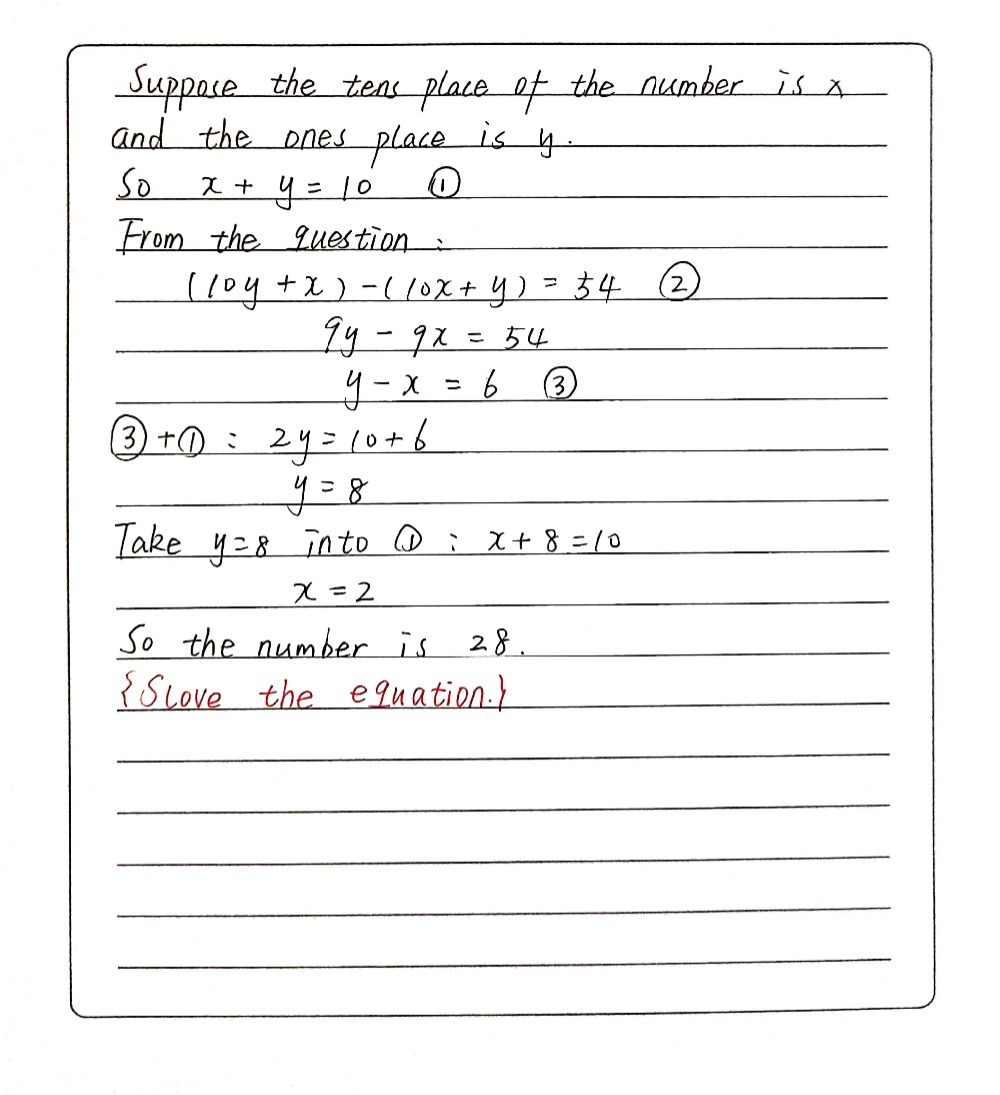 Suppose the tens place of the number is x
and the ones place is y.
So x + y = 10 ①
From the question :
(10y + x) - (10x + y) = 54 ②
9y - 9x = 54
y - x = 6 ③
③ + ① : 2y = 10 + 6
y = 8
Take y = 8 into ① : x + 8 = 10
x = 2
So the number is 28.
{Slove the equation.}